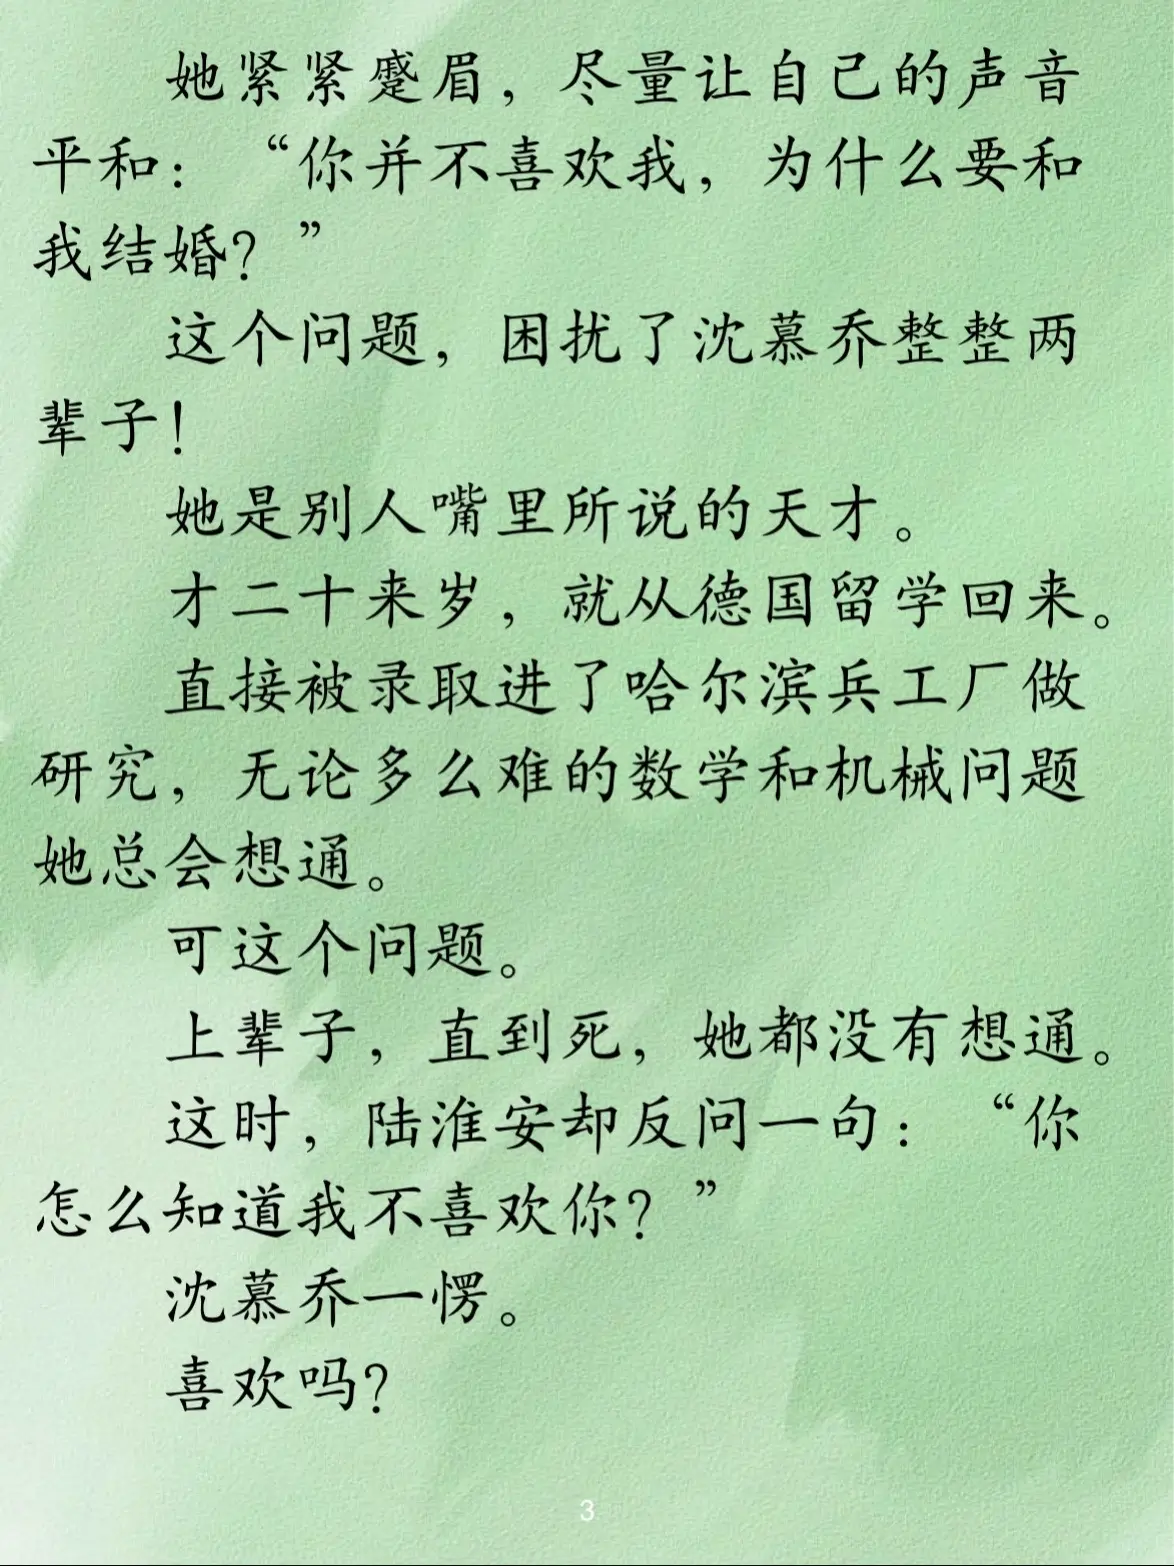 她紧紧蹙眉，尽量让自己的声音
平和：“你并不喜欢我，为什么要和
我结婚？”
这个问题，困扰了沈慕乔整整两
辈子！
她是别人嘴里所说的天才。
才二十来岁，就从德国留学回来。
直接被录取进了哈尔滨兵工厂做
研究，无论多么难的数学和机械问题
她总会想通。
可这个问题。
上辈子，直到死，她都没有想通。
这时，陆淮安却反问一句：“你
怎么知道我不喜欢你？”
沈慕乔一愣。
喜欢吗？
3